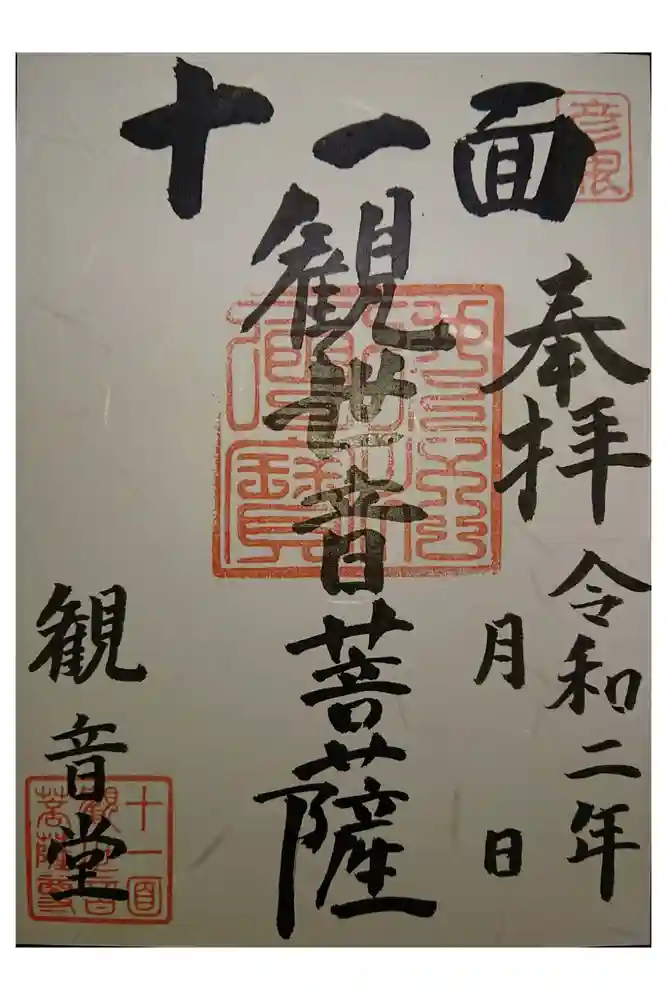 十一面
観世音菩薩
奉拝
令和二年
月 日
観音堂
彦根
十一面
観世音
菩薩